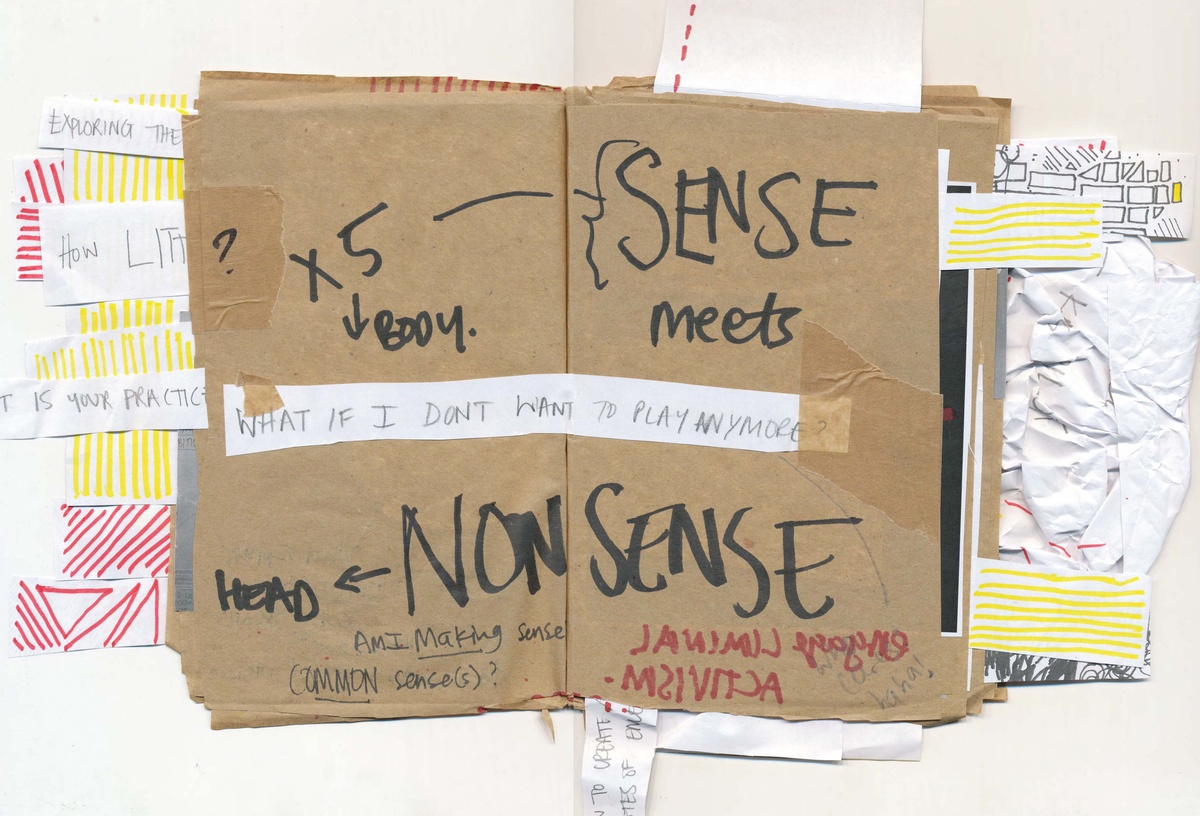 EXPLORING THE
HOW LITT
?
T IS YOUR PRACTIC
x5
↓ BODY.
{SENSE
meets
WHAT IF I DONT WANT TO PLAY ANYMORE?
NONSENSE
HEAD ←
AM I Making sense
COMMON sense(s)?
engage LIMINAL
ACTIVISM.
haha!
TO CREATE